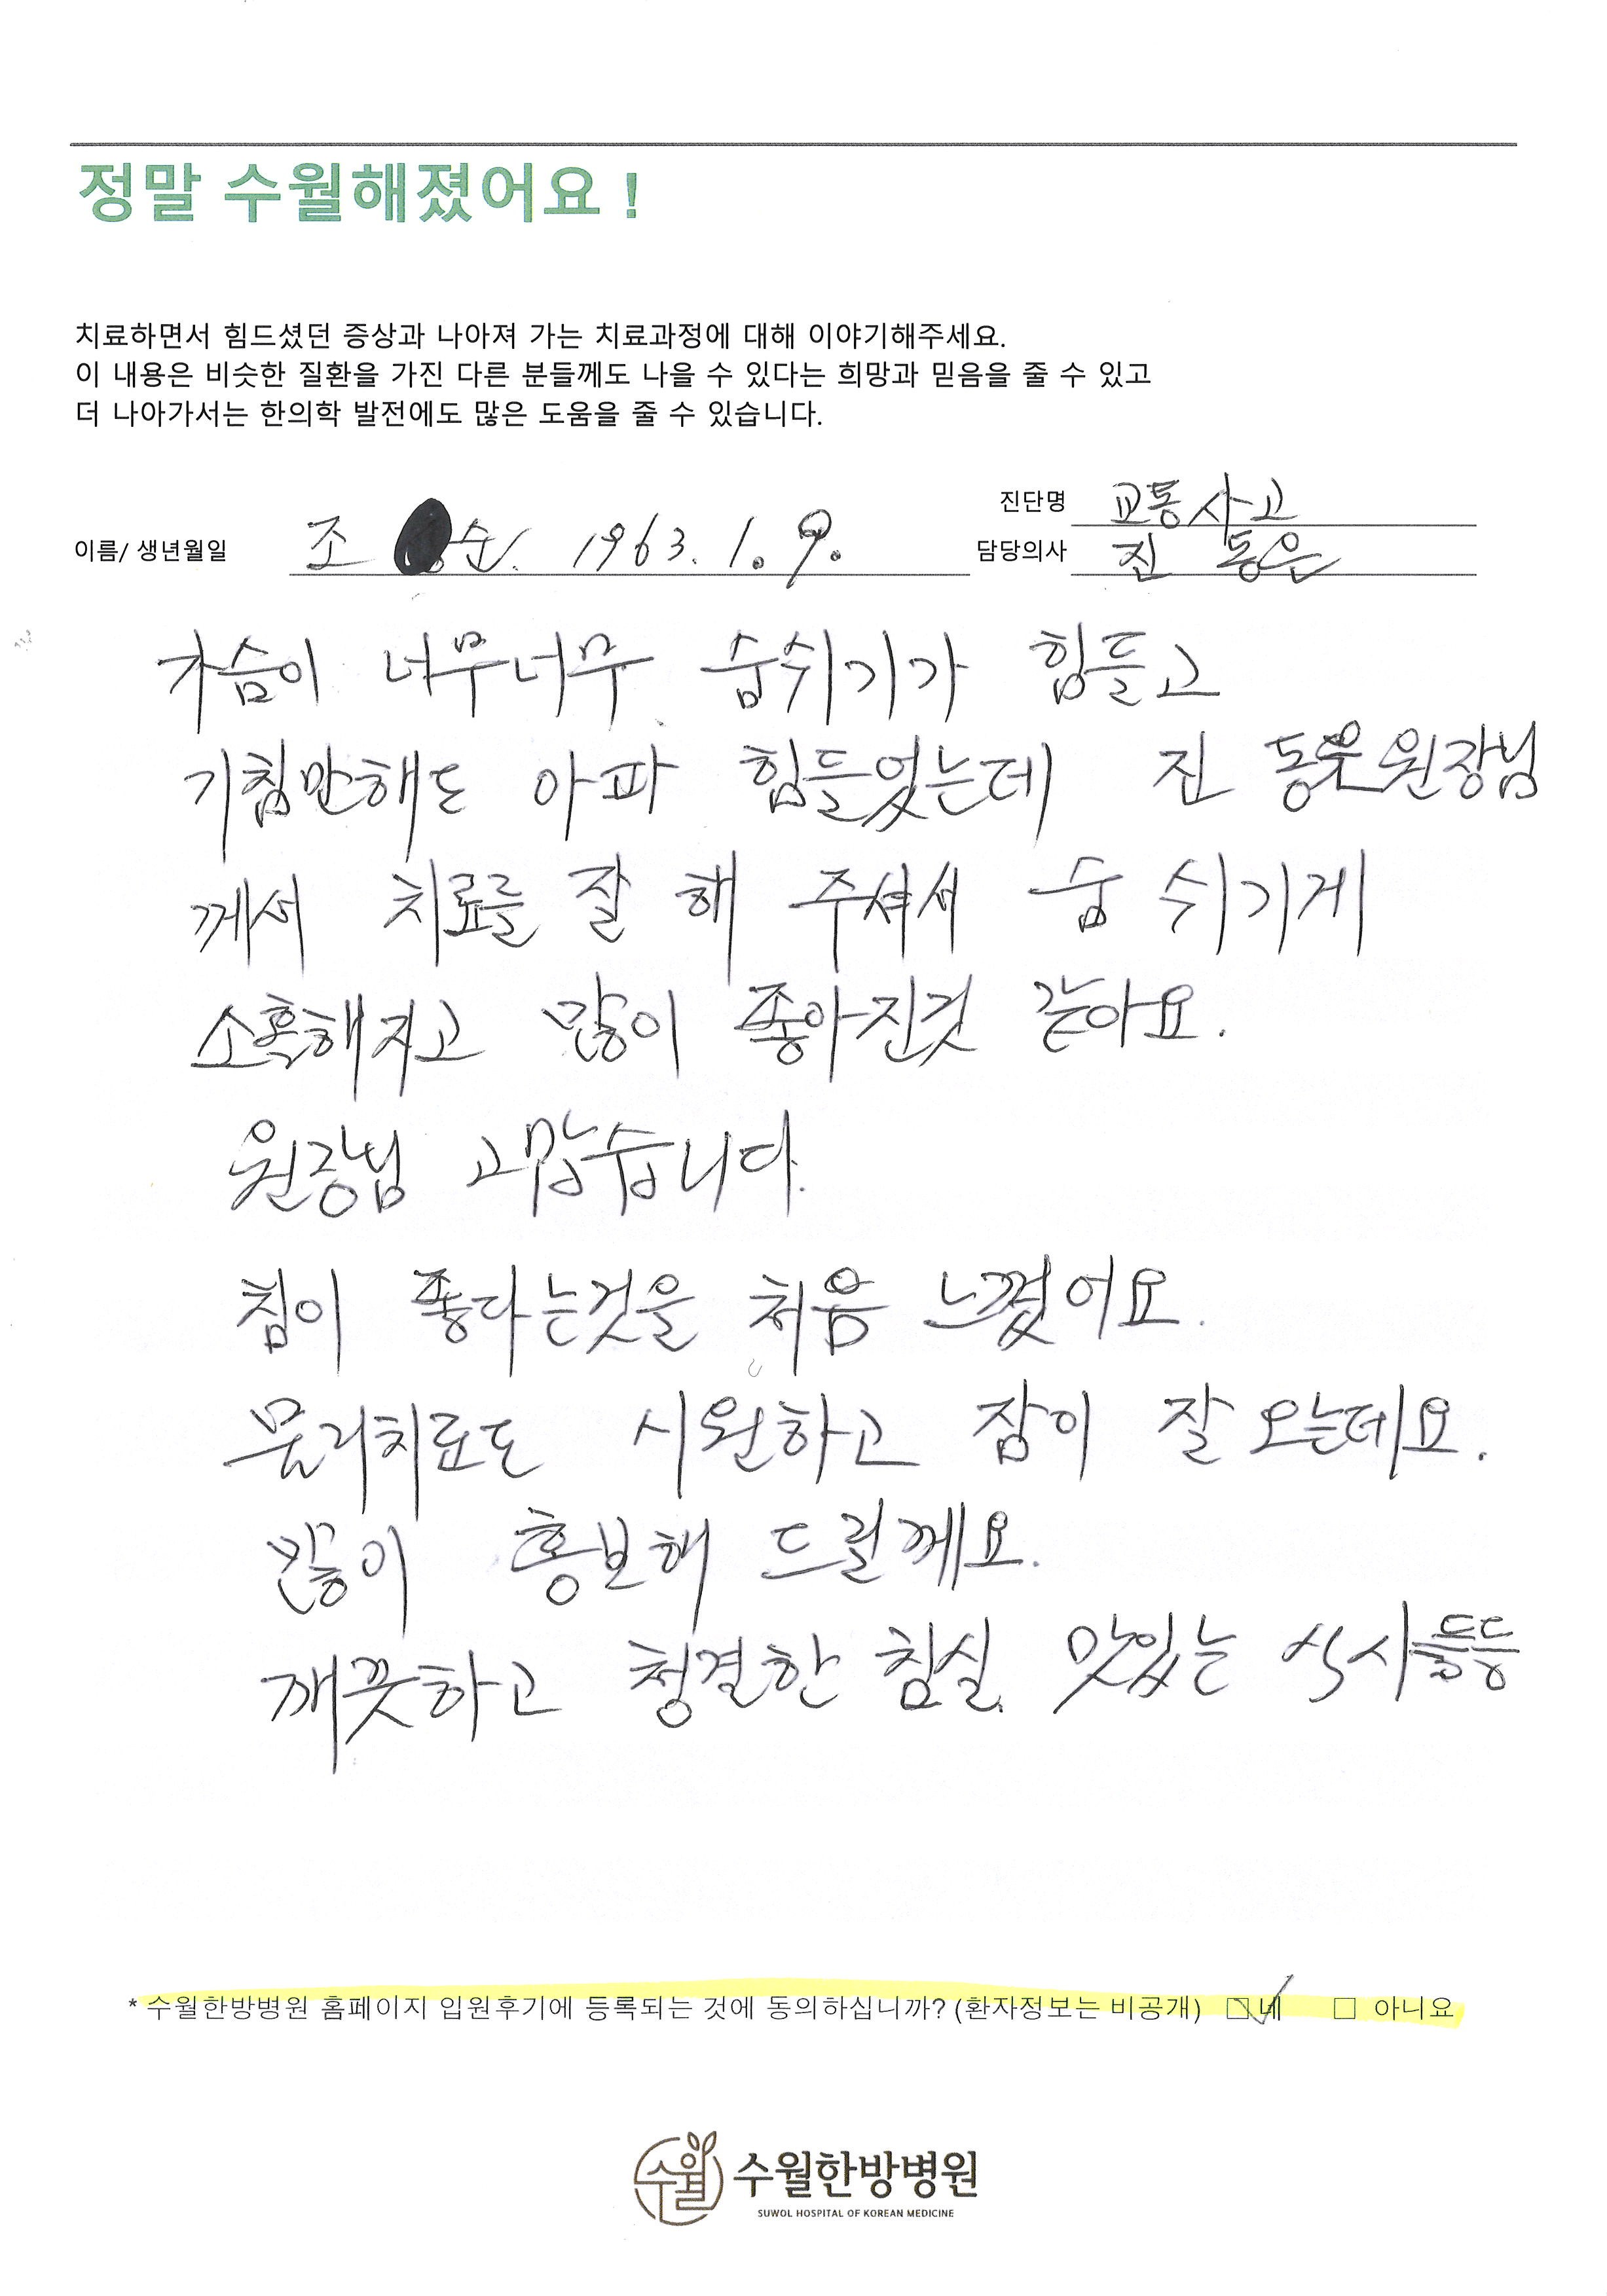 정말 수월해졌어요 !
치료하면서 힘드셨던 증상과 나아져 가는 치료과정에 대해 이야기해주세요.
이 내용은 비슷한 질환을 가진 다른 분들께도 나을 수 있다는 희망과 믿음을 줄 수 있고
더 나아가서는 한의학 발전에도 많은 도움을 줄 수 있습니다.
진단명 교통사고
이름/ 생년월일 조 순. 1963. 1. 9.
담당의사 진 동은
가슴이 너무너무 숨쉬기가 힘들고
기침만해도 아파 힘들었는데 진 원장님
께서 치료를 잘 해 주셔서 숨 쉬기게
많이 좋아진것 같아요.
원장님 고맙습니다.
침이 좋다는것을 처음 느꼈어요.
물리치료도 시원하고 잠이 잘 오는데요.
많이 홍보해 드릴께요.
깨끗하고 청결한 침실 맛있는 식사들등
* 수월한방병원 홈페이지 입원후기에 등록되는 것에 동의하십니까? (환자정보는 비공개) □ 네 □ 아니요
수월 수월한방병원
SUWOL HOSPITAL OF KOREAN MEDICINE